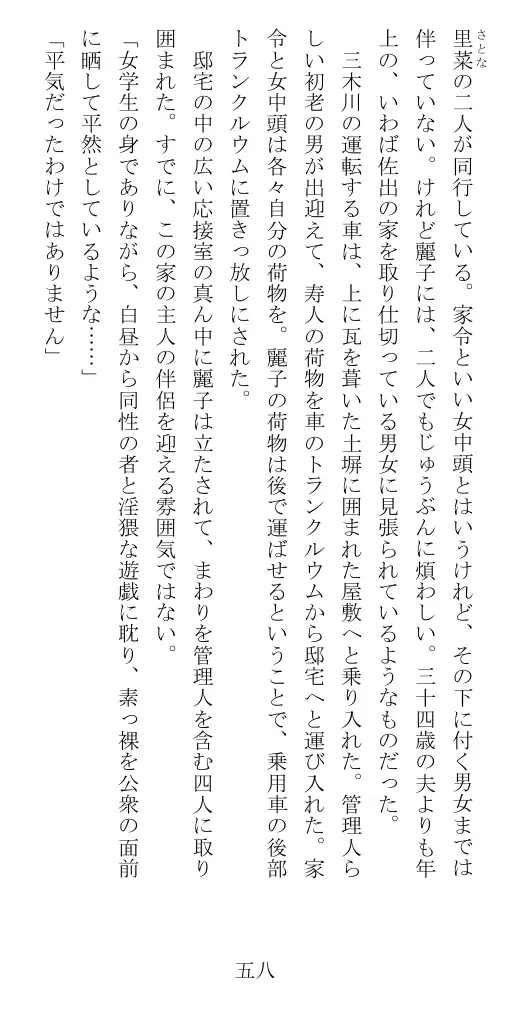 里菜の二人が同行している。家令といい女中頭とはいうけれど、その下に付く男女までは
さとな
伴っていない。けれど麗子には、二人でもじゅうぶんに煩わしい。三十四歳の夫よりも年
上の、いわば佐出の家を取り仕切っている男女に見張られているようなものだった。
　三木川の運転する車は、上に瓦を葺いた土塀に囲まれた屋敷へと乗り入れた。管理人ら
しい初老の男が出迎えて、寿人の荷物を車のトランクルウムから邸宅へと運び入れた。家
令と女中頭は各々自分の荷物を。麗子の荷物は後で運ばせるということで、乗用車の後部
トランクルウムに置きっ放しにされた。
　邸宅の中の広い応接室の真ん中に麗子は立たされて、まわりを管理人を含む四人に取り
囲まれた。すでに、この家の主人の伴侶を迎える雰囲気ではない。
「女学生の身でありながら、白昼から同性の者と淫猥な遊戯に耽り、素っ裸を公衆の面前
に晒して平然としているような……」
「平気だったわけではありません」
五八